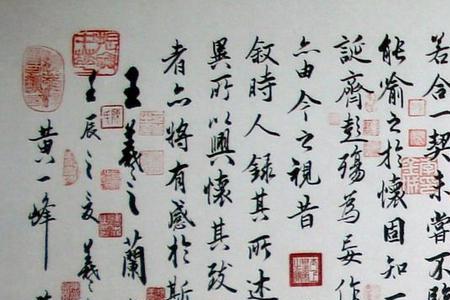 若合一契未嘗不臨
能喻之於懷固知
誕齊彭殤為妄作
亦由今之視昔
叙時人録其所述
異所以興懷其致
者亦將有感於斯
王羲之蘭
壬辰之夏羲
黃一峰